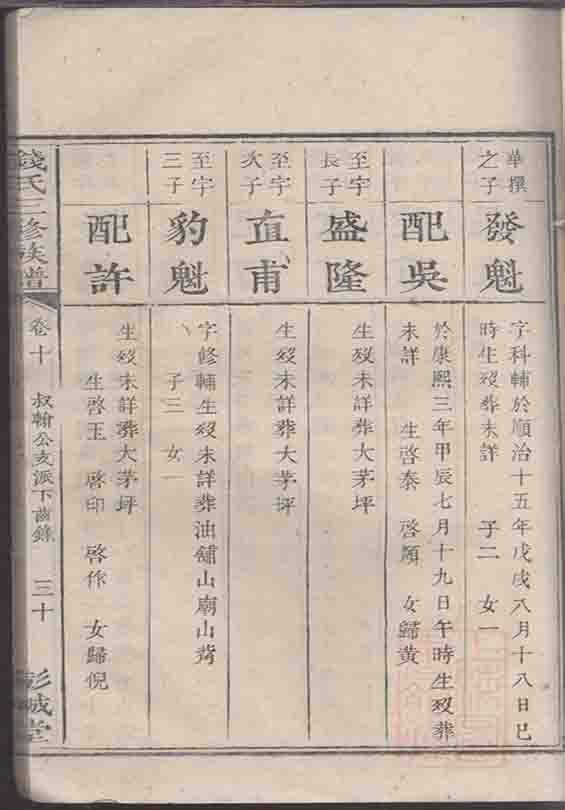 華撰
之子
發魁
字科輔於順治十五年戊戌八月十八日巳
時生歿葬未詳 子二 女一
配吳
於康熙三年甲辰七月十九日午時生歿葬
未詳 生啓泰 啓順 女歸黄
至宇
長子
盛隆
生歿未詳葬大茅坪
至宇
次子
直甫
生歿未詳葬大茅坪
至宇
三子
豹魁
字修輔生歿未詳葬油舖山廟山背
子三 女一
配許
生歿未詳葬大茅坪
生啓玉 啓印 啓作 女歸倪
錢氏三修族譜
卷十
叔翰公支派下齒錄
三十
彭城堂